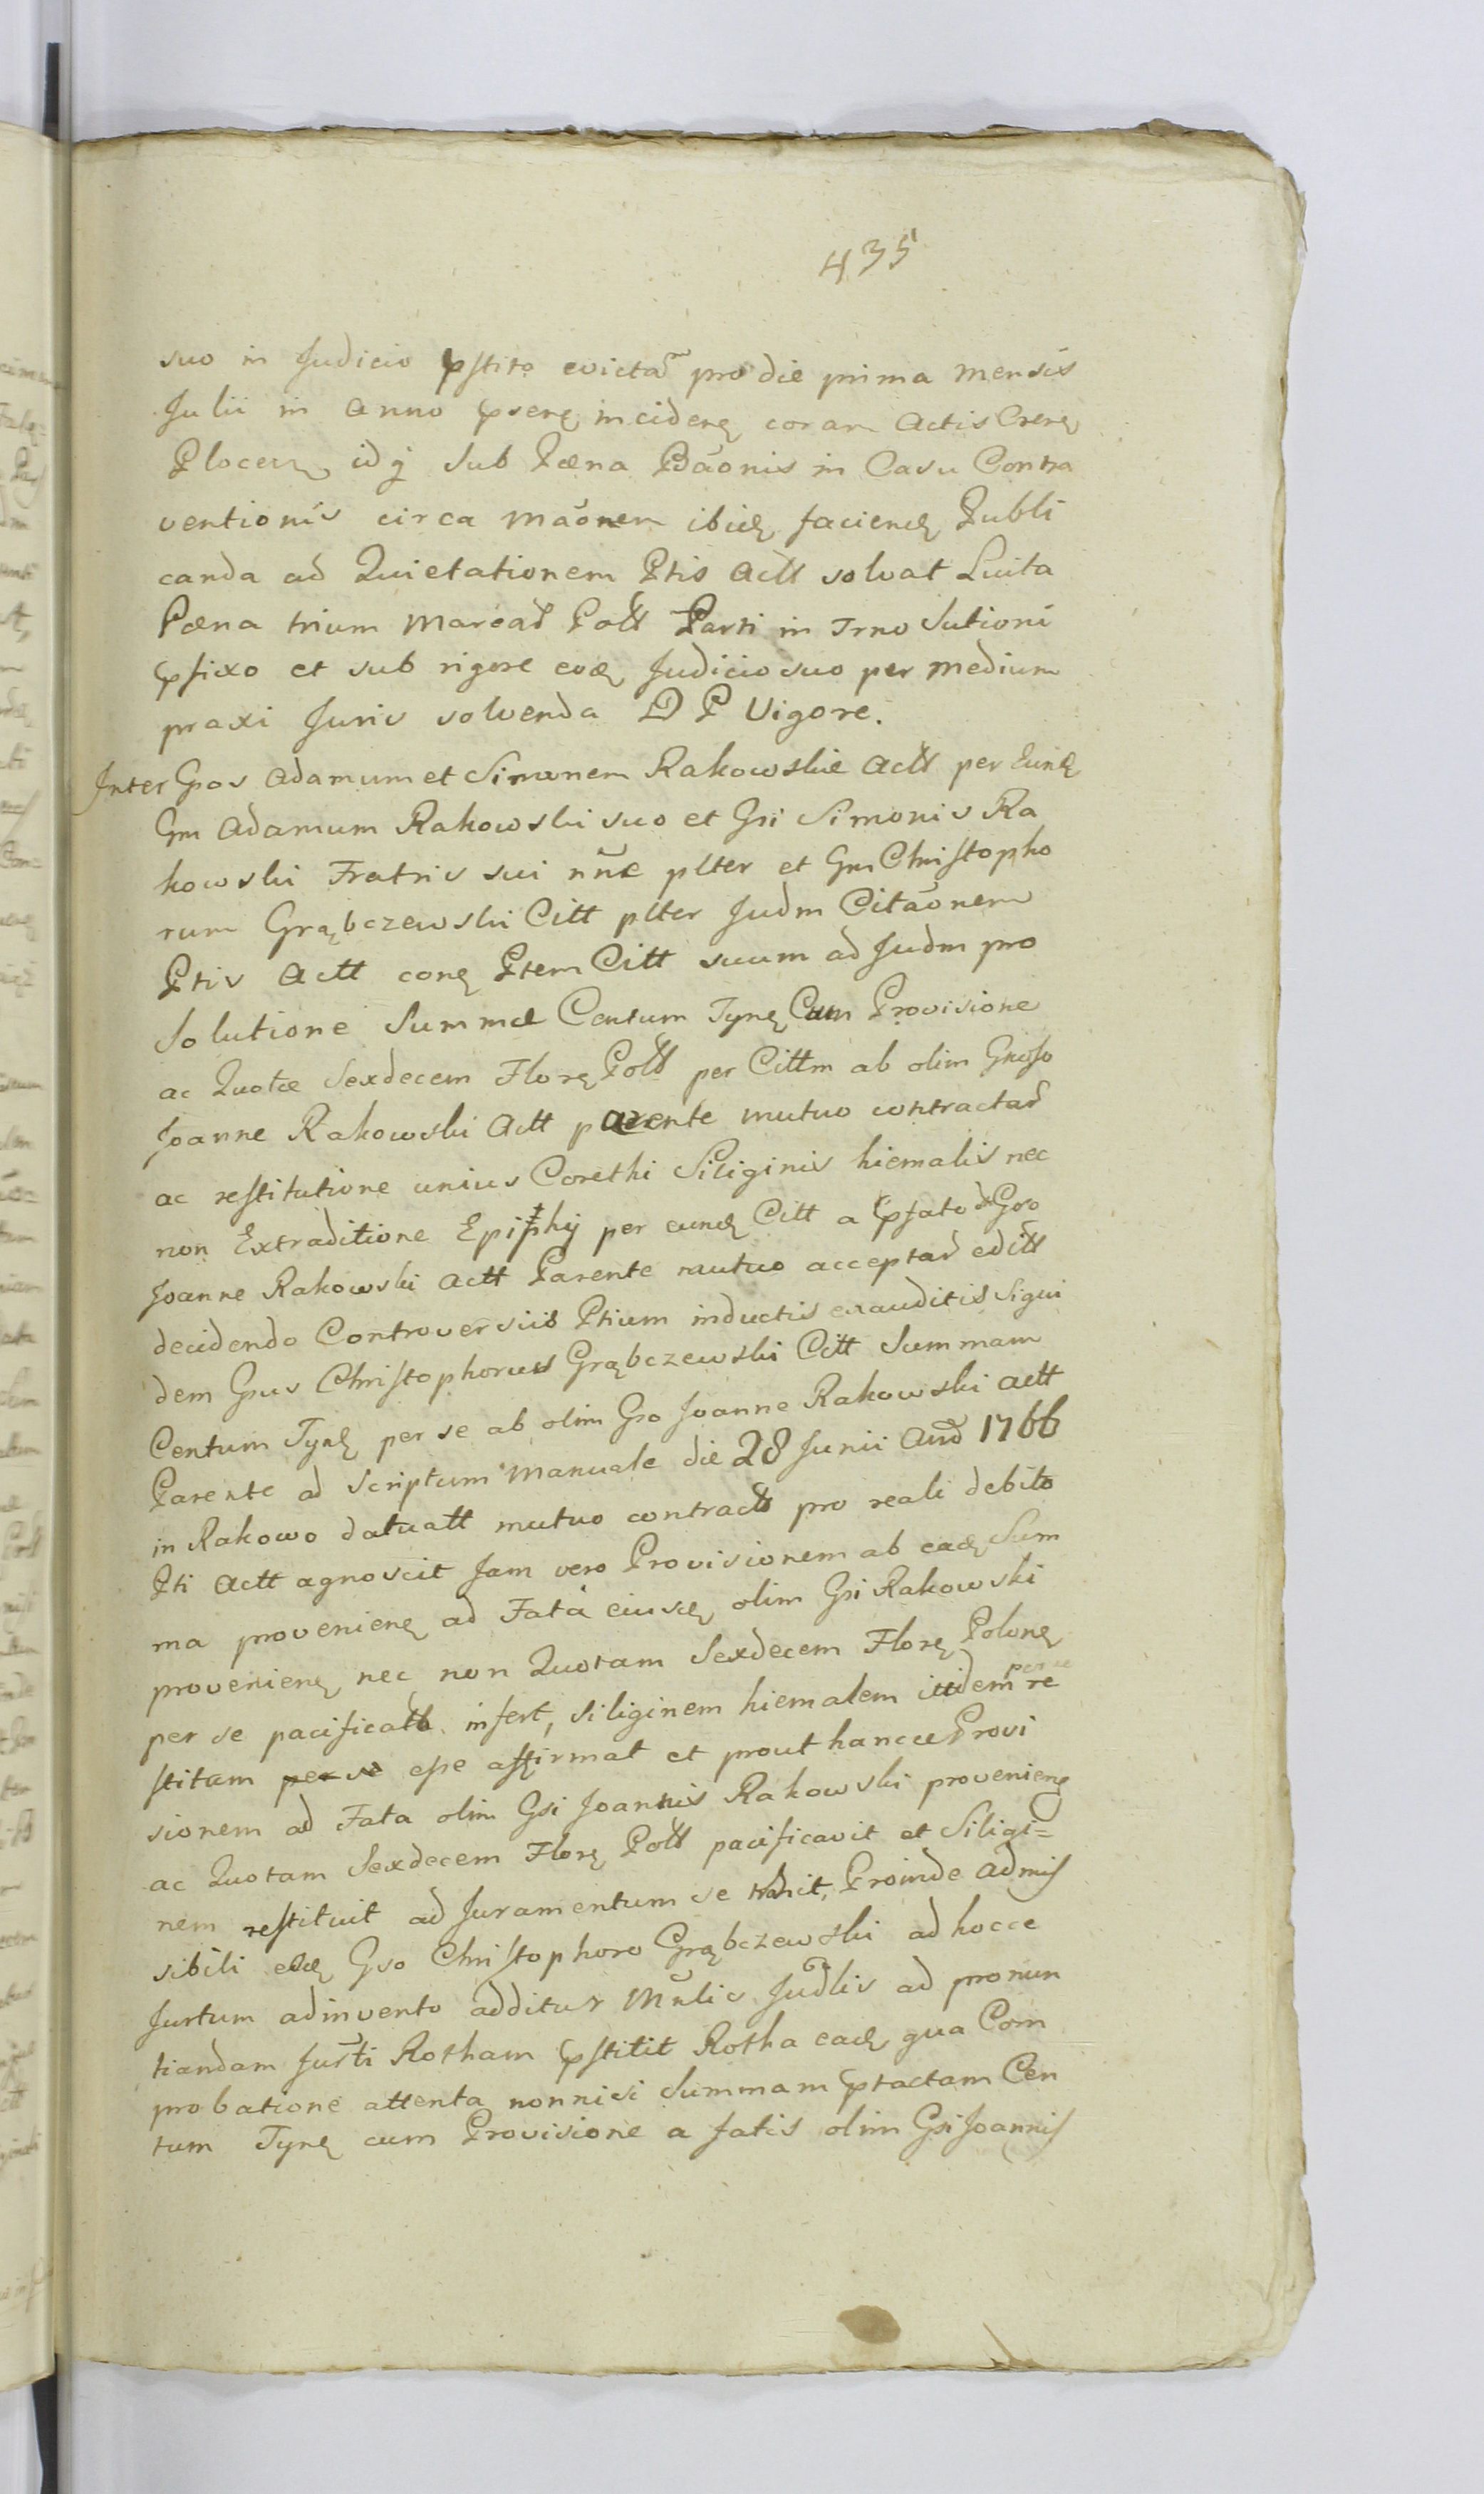 435
suo in Judicio pstito evictã pro die prima Mensis
Julii in Anno pserę incidenę coram Actis Crenę
Plocen idq sub Pæna Bãonis in Casu Contra
ventionis circa Mãonem ibidę faciendę Publi
canda ad Quietationem Ptis Actt solvat Luita
Pæna trium Marcar Poll Parti in Trno Solutioni
pfixo et sub rigore eodę Judicio suo per Medium
praxi Juris solvenda D P Vigore.
Inter Gsos Adamum et Simonem Rakowskie Actt per Eundę
Gm Adamum Rakowski suo et Gsi Simonis Ra
kowski Fratris sui nñe plter et Gm Christopho
rum Grąbczewski Citt plter Judm Citãonem
Ptis Actt conę Ptem Citt suum ad Judm pro
Solutione Summæ Centum Tynę Cum Provisione
ac Quotæ Sexdecem Flore Poll per Cittm ab olim Gnoso
Joanne Rakowski Actt parente mutuo contractar
ac restitutione unius Corethi Siliginis hiemalis nec
non Extraditione Epiphij per eundę Citt a pfato Gso
Joanne Rakowski Actt Parente mutuo acceptar editt
decidendo Controversiis Ptium inductis exauditis Siqui
dem Gsus Christophorus Grąbczewski Citt Summam
Centum Tynę per se ab olim Gso Joanne Rakowski Actt
Parente ad Scriptum Manuale die 28 Junii And 1766
in Rakowo datuatt mutuo contractt pro reali debito
Pti Actt agnoscit Jam vero Provisionem ab eadę Sum
ma provenienę ad Fata eiusdę olim Gsi Rakowski
provenienę nec non Quotam Sexdecem Florę Polonę
per se pacificatt infert, Siliginem hiemalem itidem per se re
stitam per se esse affirmat et prout hancce Provi
sionem ad Fata olim Gsi Joannis Rakowski provenienę
ac Quotam Sexdecem Florę Poll pacificavit et Siligi=
nem restituit ad Juramentum se trahit, Proinde Admis
sibili eodę Gso Christophoro Grąbczewski ad hocce
Jurtum adinvento additus Mñlis Judlis ad pronun
tiandam Jurti Rotham pstitit Rotha eadę qua Com
probatione attenta nonnisi Summam ptactam Cen
tum Tynę cum Provisione a fatis olim Gsi Joannis